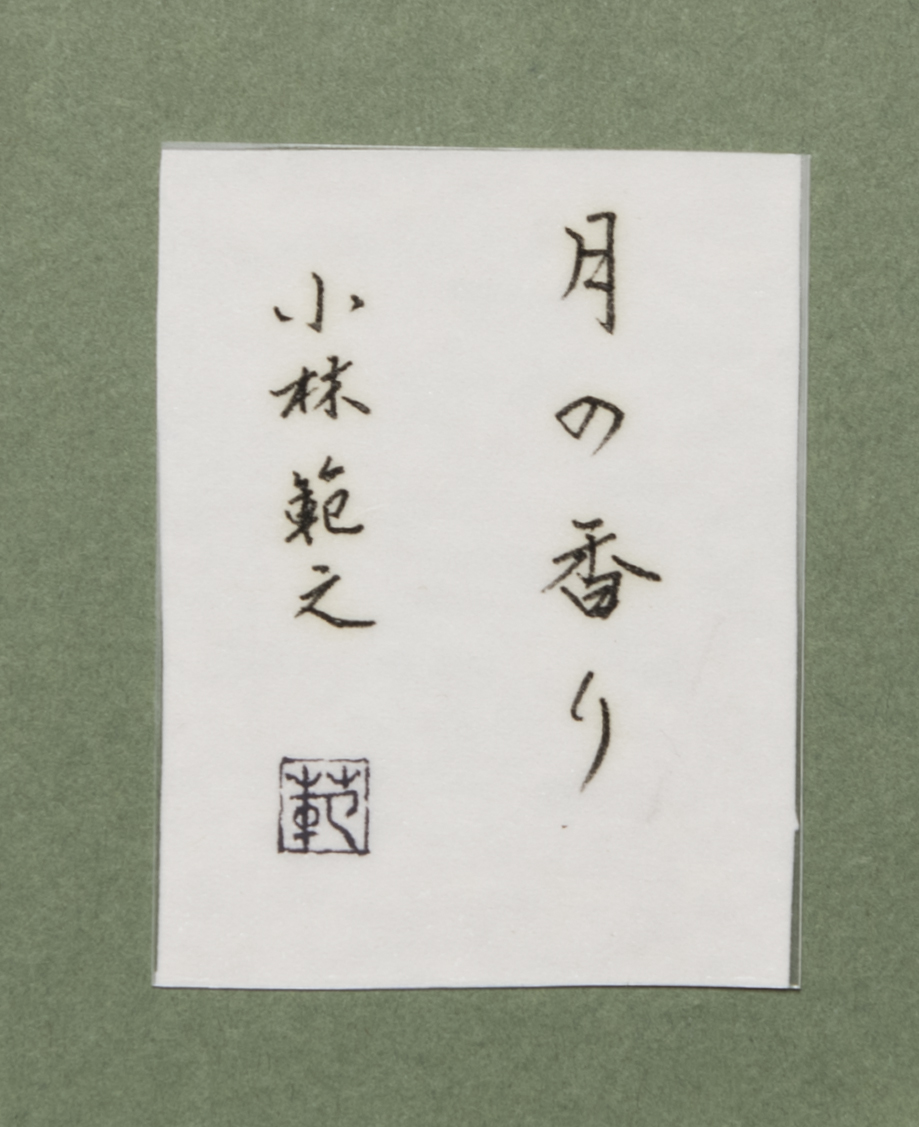 月の香り
小林範之
範